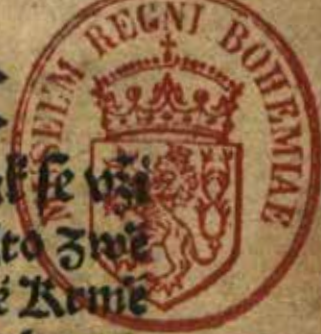 MUSEUM REGNI BOHEMIAE
se vži
to Zwě
é Krmě